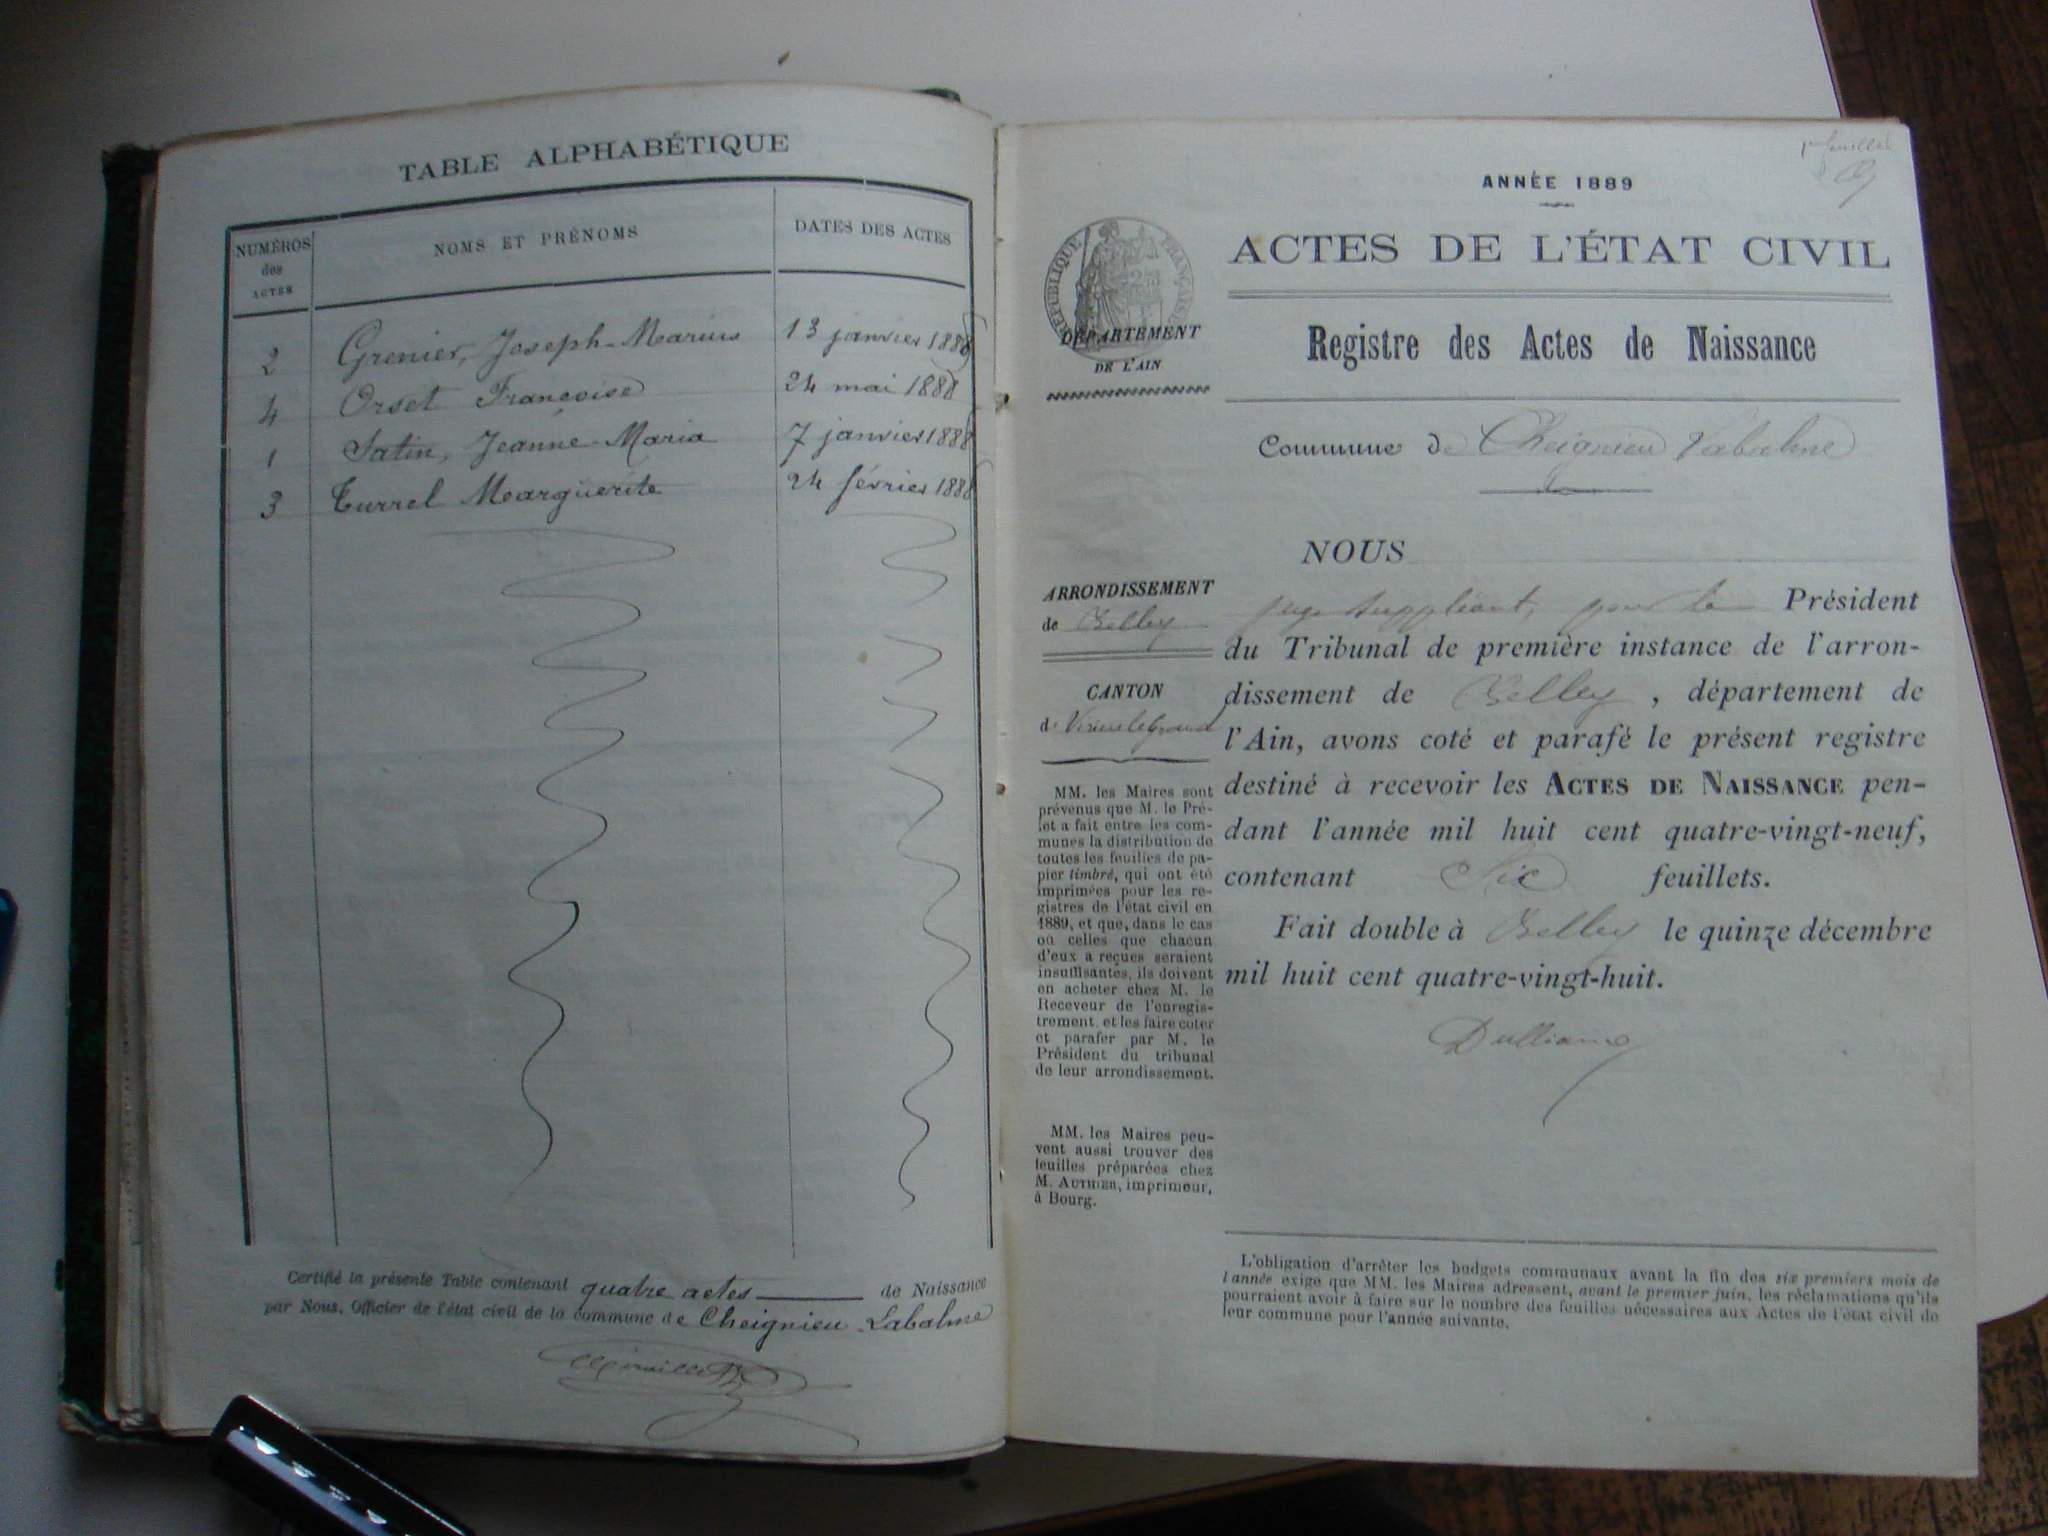 TABLE ALPHABÉTIQUE
NUMÉROS des ACTES
NOMS ET PRÉNOMS
DATES DES ACTES
2 Grenier, Joseph-Marius 13 janvier 1888
4 Orset Françoise 24 mai 1888
1 Satin, Jeanne-Maria 7 janvier 1888
3 Turrel Marguerite 24 février 1888
Certifié la présente Table contenant quatre actes de Naissance
par Nous, Officier de l'état civil de la commune de Cheignieu-Labalme
1er feuillet
ANNÉE 1889
ACTES DE L'ÉTAT CIVIL
RÉPUBLIQUE FRANÇAISE
DÉPARTEMENT
DE L'AIN
Registre des Actes de Naissance
Commune de Cheignieu Labalme
NOUS
ARRONDISSEMENT
de Belley
CANTON
de Virieu le Grand
MM. les Maires sont
prévenus que M. le Pré-
fet a fait entre les com-
munes la distribution de
toutes les feuilles de pa-
pier timbré, qui ont été
imprimées pour les re-
gistres de l'état civil en
1889, et que, dans le cas
où celles que chacun
d'eux a reçues seraient
insuffisantes, ils doivent
en acheter chez M. le
Receveur de l'enregis-
trement, et les faire coter
et parafer par M. le
Président du tribunal
de leur arrondissement.
MM. les Maires peu-
vent aussi trouver des
feuilles préparées chez
M. AUTHIER, imprimeur,
à Bourg.
juge suppléant, pour le Président
du Tribunal de première instance de l'arron-
dissement de Belley, département de
l'Ain, avons coté et parafé le présent registre
destiné à recevoir les ACTES DE NAISSANCE pen-
dant l'année mil huit cent quatre-vingt-neuf,
contenant Six feuillets.
Fait double à Belley le quinze décembre
mil huit cent quatre-vingt-huit.
L'obligation d'arrêter les budgets communaux avant la fin des six premiers mois de
l'année exige que MM. les Maires adressent, avant le premier juin, les réclamations qu'ils
pourraient avoir à faire sur le nombre des feuilles nécessaires aux Actes de l'état civil de
leur commune pour l'année suivante.